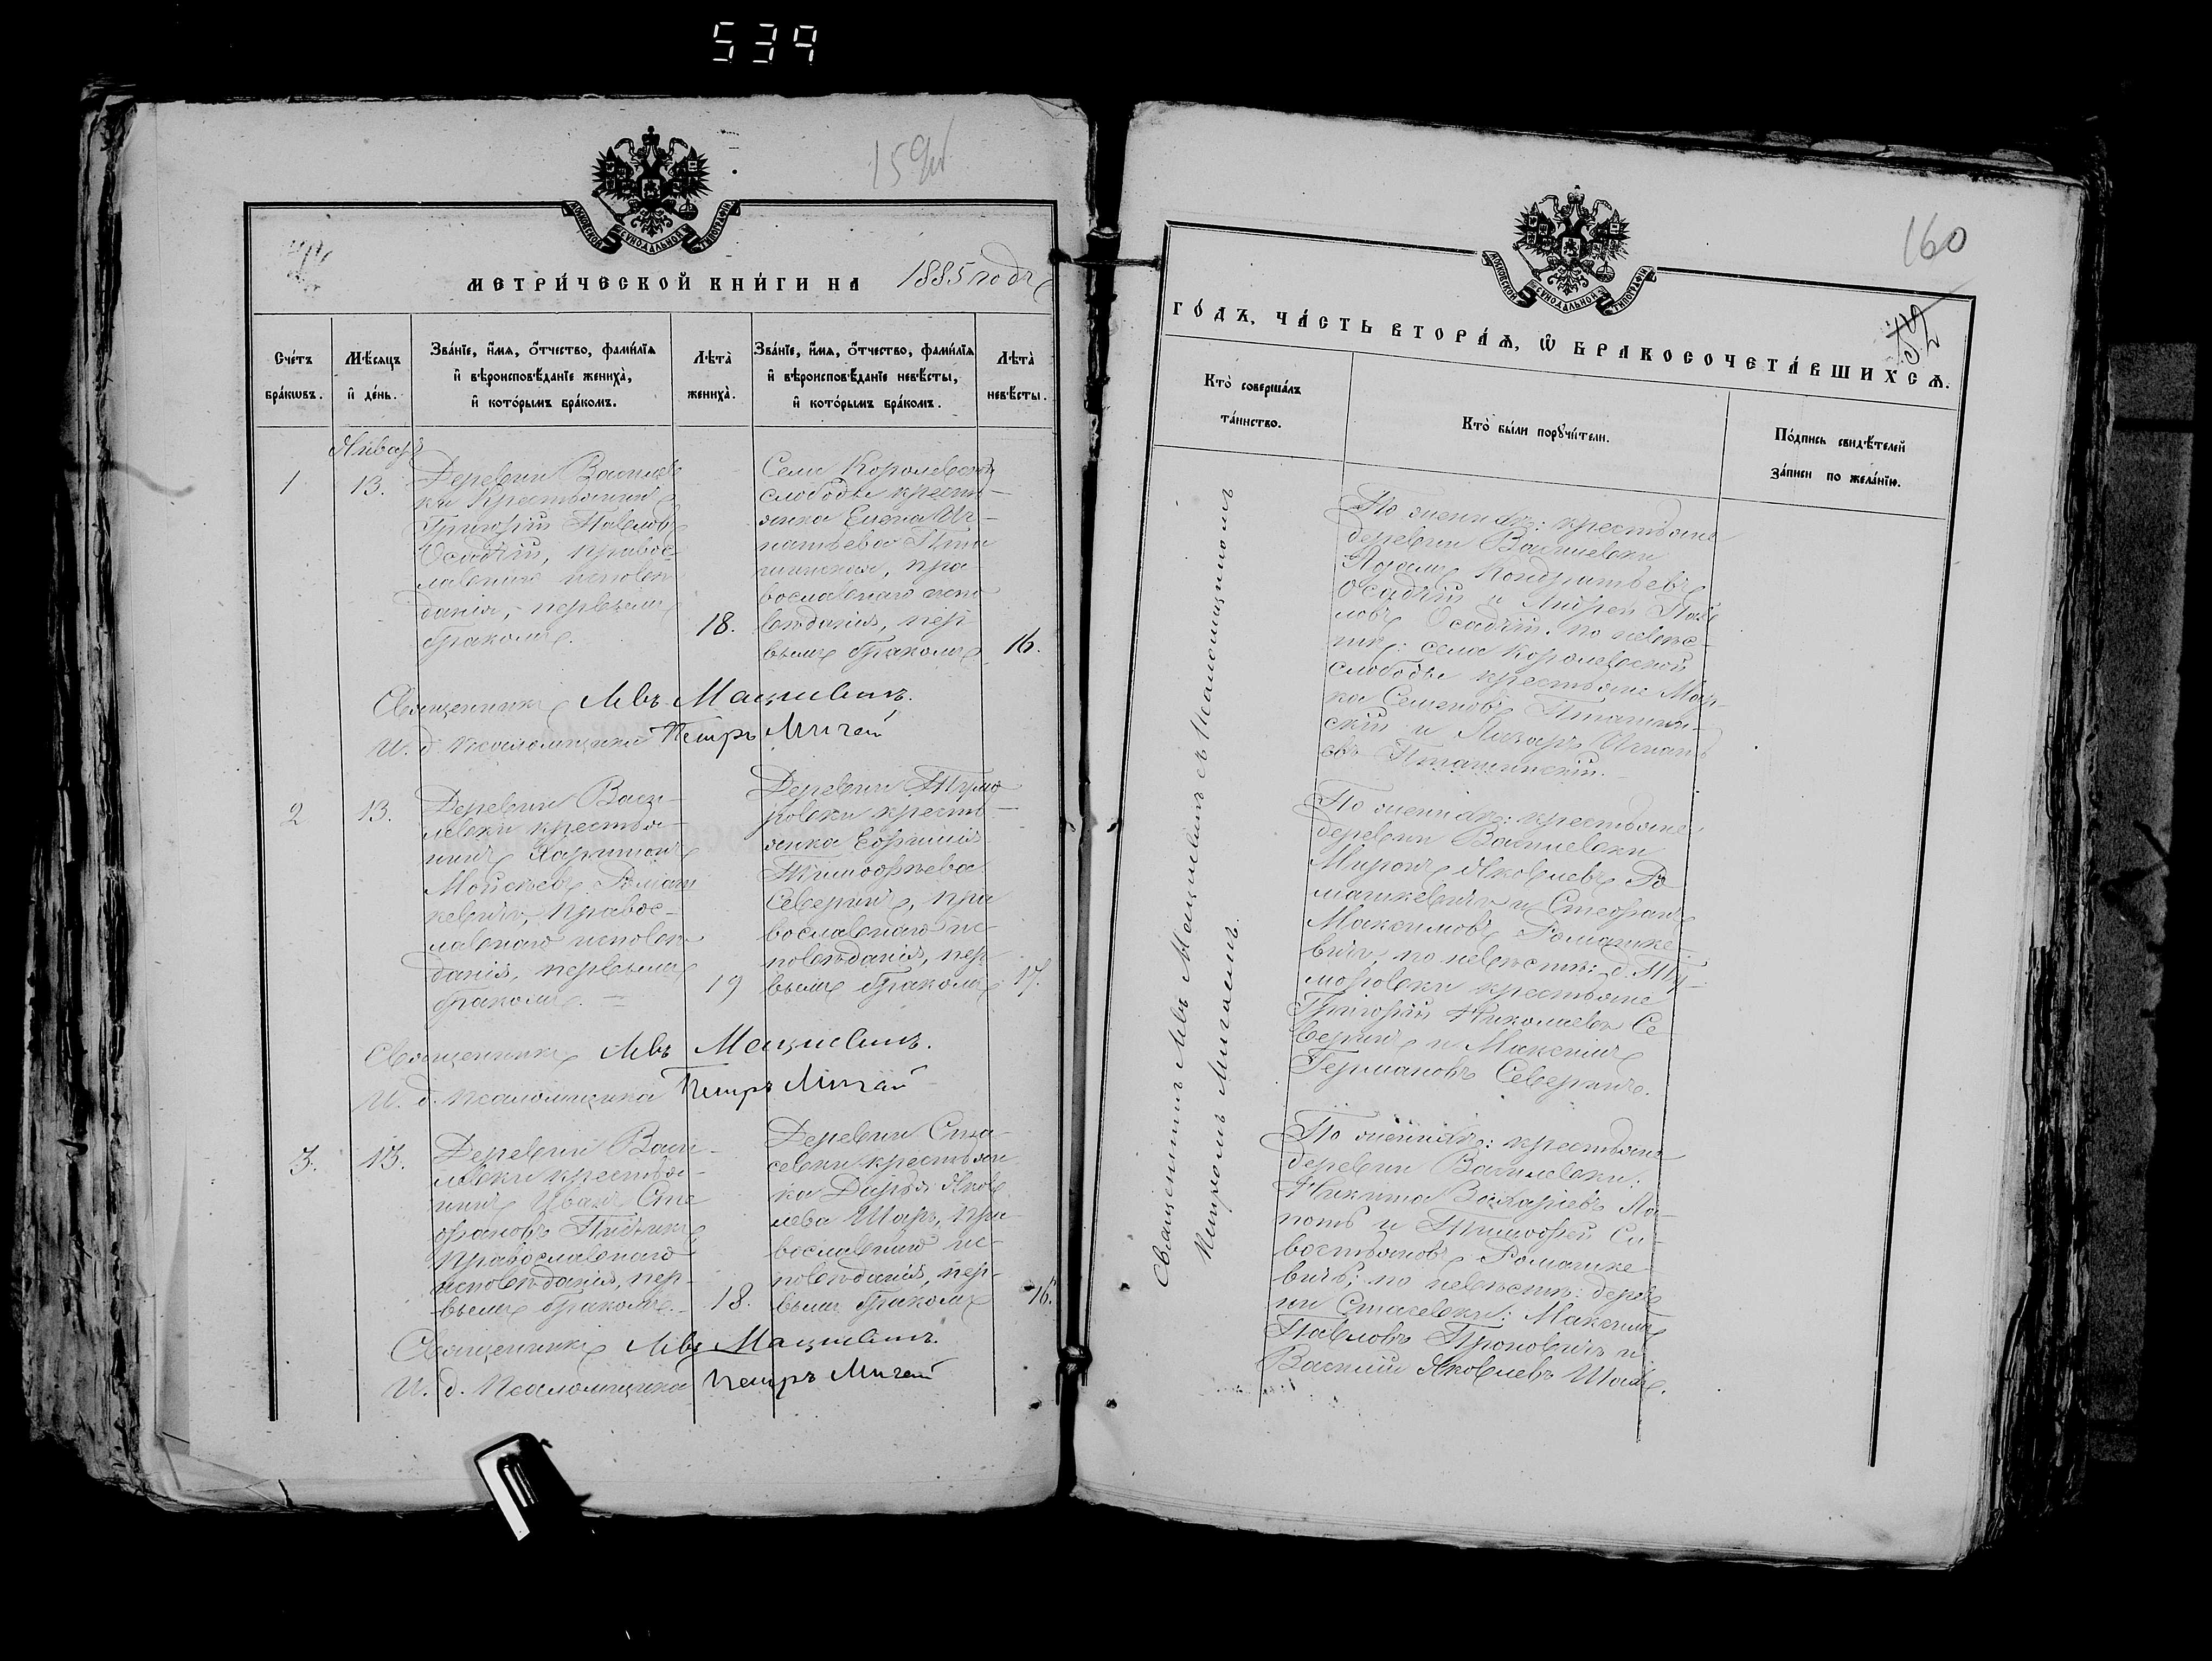 534
159об
МОСКОВСКОЙ СУНОДАЛЬНОЙ ТИПОГРАФІИ
МЕТРИ́ЧЕСКОЙ КНИ́ГИ НА 1885 годъ
Сче́тъ бра́кωвъ.
Мѣ́сяцъ и҆ де́нь.
Зва́нїе, и҆́мѧ, ѻ҆́тчество, фами́лїѧ и҆ вѣроисповѣ́данїе женихà, и҆ кото́рымъ бра́комъ.
Лѣ́та женихà.
Зва́нїе, и҆́мѧ, ѻ҆́тчество, фами́лїѧ и҆ вѣроисповѣ́данїе невѣ́сты, и҆ кото́рымъ бра́комъ.
Лѣ́та невѣ́сты.
Январь
1
13.
Деревни Василев
ки крестьянинъ
Григорій Павловъ
Осадчій, правос
лавнаго исповѣ
данія, первымъ
бракомъ.
18.
Села Королевской
слободы крестья-
янка Елена Иг-
натьева Пта
шинская, пра
вославнаго испо
вѣданія, пер
вымъ бракомъ
16.
Священникъ Левъ Мацкевичъ.
И. д. псаломщика Петръ Мигай
2
13.
Деревни Васи-
левки крестья-
нинъ Харитонъ
Моисеевъ Ромаш
кевичъ, правос-
лавнаго исповѣ
данія, первымъ
бракомъ.
19
Деревни Тумо
ровки кресть-
янка Ефимія
Тимофѣева
Северинъ, пра
вославнаго ис-
повѣданія, пер
вымъ бракомъ
17.
Священникъ Левъ Мацкевичъ.
И. д. псаломщика Петръ Мигай
3.
13.
Деревни Васи-
левки крестья-
нинъ Иванъ Сте
фановъ
Православнаго
исповѣданія, пер-
вымъ бракомъ.
18.
Деревни Ста-
севки крестьян
ка Дарья Яков
лева Шаръ, пра
вославнаго ис-
повѣданія, пер-
вымъ бракомъ
16.
Священникъ Левъ Мацкевичъ.
И. д. Псаломщика Петръ Мигай
160
МОСКОВСКОЙ СУНОДАЛЬНОЙ ТИПОГРАФІИ
52
ГО́ДЪ, ЧА́СТЬ ВТОРА́Ѧ, Ѽ БРАКОСОЧЕТА́ВШИХСѦ.
Кто̀ соверша́лъ та́инство.
Кто̀ бы́ли порꙋчи́тели.
По́дпись свидѣ́телей за́писи по жела́нїю.
Священникъ Левъ Мацкевичъ съ Псаломщикомъ
Петромъ Мигаемъ.
По женихѣ: крестьяне
деревни Василевки
Адамъ Кондратьевъ
Осадчій и Андрей Пав
ловъ Осадчій; по невѣс-
тѣ: села Королевской
слободы крестьяне Мар-
ко Семеновъ Пташин-
скій и Лазарь Игнать
евъ Пташинскій.
По женихѣ: крестьяне
деревни Василевки
Миронъ Яковлевъ Ро
машкевичъ и Стефанъ
Максимовъ Ромашке-
вичъ; по невѣстѣ: д. Ту-
моровки крестьяне
Григорій Николаевъ Се-
веринъ и Максимъ
Германовъ Северинъ.
По женихѣ: крестьяне
деревни Василевки:
Никита Захаріевъ Ла-
поть и Тимофей Са-
востьяновъ Ромашке-
вичъ; по невѣстѣ: дерев
ни Стасевки: Максимъ
Павловъ Проковичъ и
Василій Яковлевъ Шаръ.